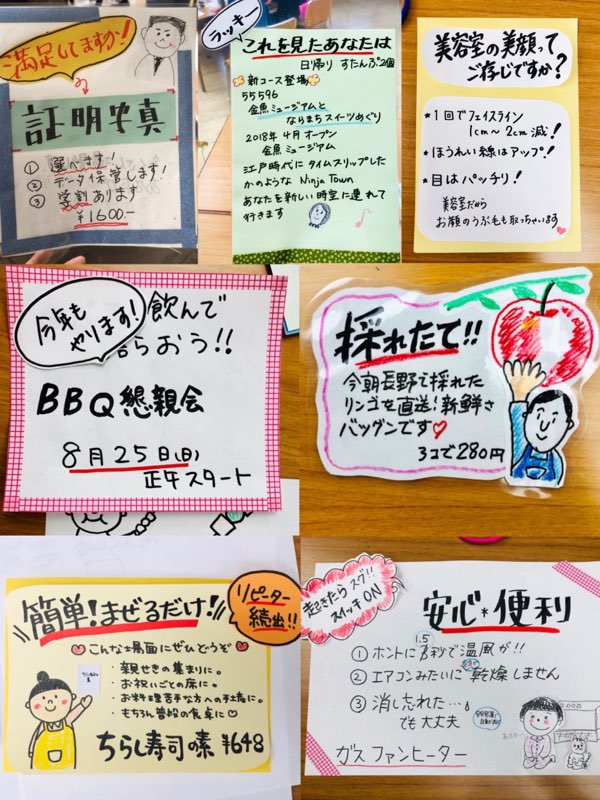 満足してますか!
証明写真
① 選べます!
② データ保管します!
③ 学割あります
¥1600-
ラッキー
これを見たあなたは
日帰り すたんぷ2個
新コース登場
55596
金魚ミュージアムと
ならまちスイーツめぐり
2018年4月オープン
金魚ミュージアム
江戸時代にタイムスリップした
かのような Ninja Town
あなたを新しい時空に連れて
行きます
美容室の美顔って
ご存じですか?
★1回でフェイスライン
1cm〜2cm減!
★ほうれい線はアップ!
★目はパッチリ!
美容室だから
お顔のうぶ毛も取っちゃいます♥
今年も
やります!
飲んで
らおう!!
BBQ懇親会
8月25日(日)
正午スタート
採れたて!!
今朝長野で採れた
リンゴを直送!新鮮さ
バツグンです♥
3コで280円
簡単!まぜるだけ!
リピーター
続出!!
♥こんな場面にぜひどうぞ♥
・親せきの集まりに。
・お祝いごとの席に。
・お料理苦手な方への手土産に。
・もちろん普段の食卓に♡
ちらし寿司の素 ¥648
起きたらスグ!!
スイッチON
安心*便利
① ホントに1.5秒で温風が!!
② エアコンみたいに乾燥しません
③ 消し忘れた…。
でも大丈夫
ガスファンヒーター